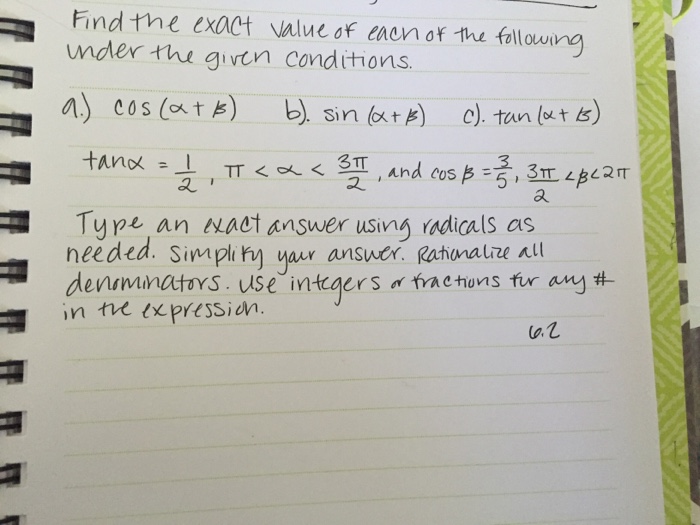 Find the exact value of each of the following
under the given conditions.
a.) cos (α + β) b). sin (α + β) c). tan (α + β)
tanα = 1/2, π < α < 3π/2, and cos β = 3/5, 3π/2 < β < 2π
Type an exact answer using radicals as
needed. Simplify your answer. Rationalize all
denominators. Use integers or fractions for any #
in the expression.
6.2